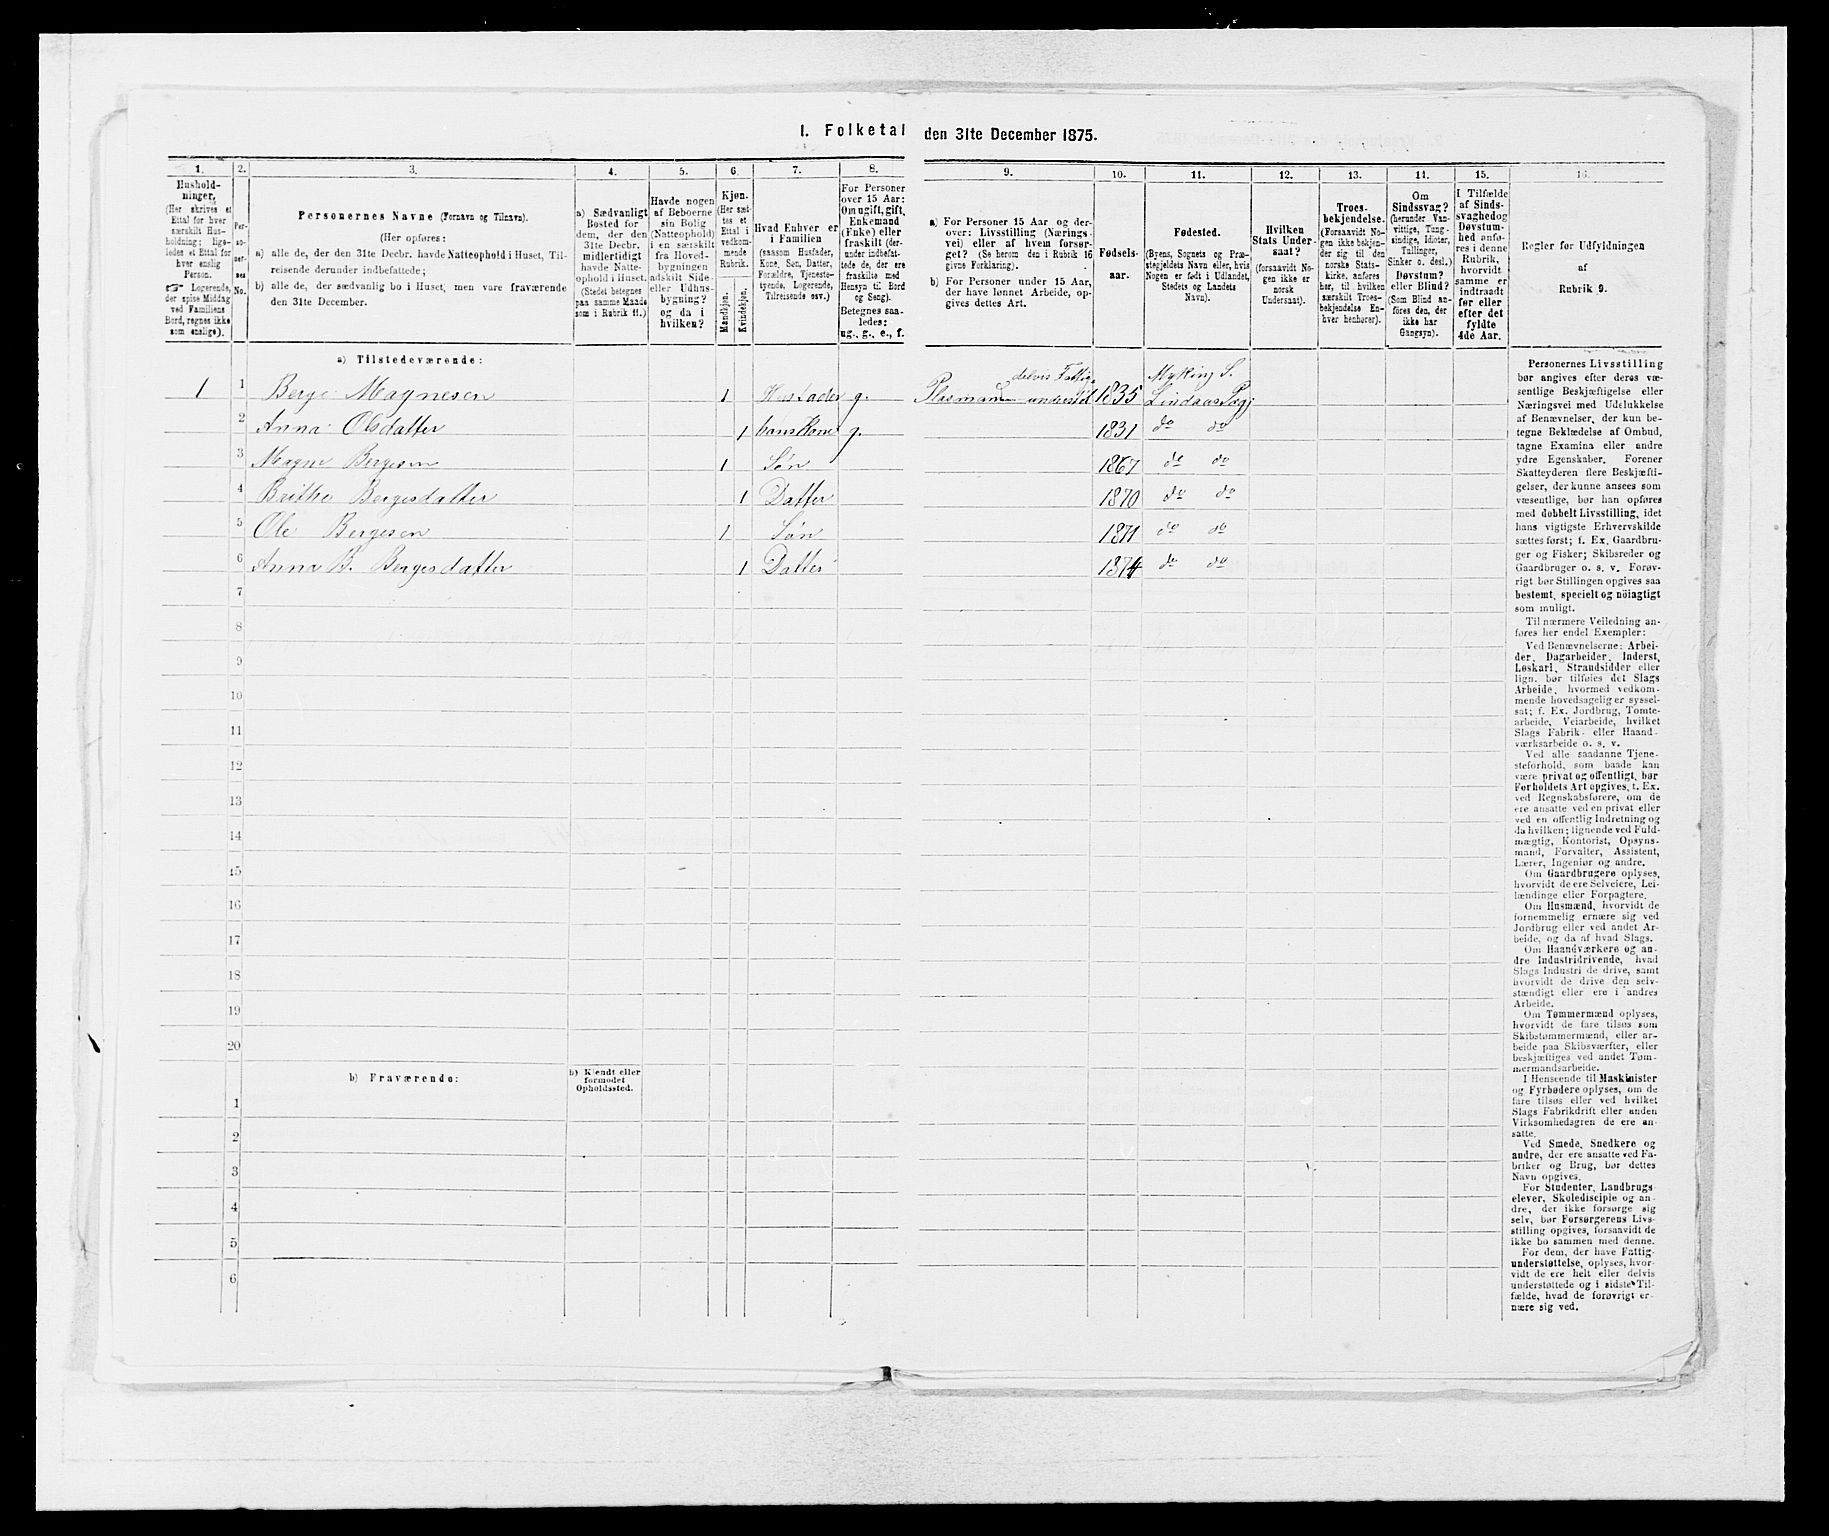 I. Folketal den 31te December 1875.
1. 2. 3. 4. 5. 6. 7. 8. 9. 10. 11. 12. 13. 14. 15. 16.
Husholdninger,
(Her skrives et
Ettal for hver
særskilt Husholdning;
ligeledes et Ettal for
hver enslig
Person.
☞ Logerende,
der spise Middag
ved Familiens
Bord, regnes ikke
som enslige).
Personernes No.
Personernes Navne (Fornavn og Tilnavn).
(Her opføres:
a) alle de, der den 31te Decbr. havde Natteophold i Huset, Tilreisende
derunder indbefattede;
b) alle de, der sædvanlig bo i Huset, men vare fraværende
den 31te December.
a) Sædvanligt
Bosted for
dem, der den
31te Decbr.
midlertidigt
havde Natteophold
i Huset.
(Stedet betegnes
paa samme Maade
som i Rubrik 11.)
Havde nogen
af Beboerne
sin Bolig
(Natteophold)
i en særskilt
fra Hovedbygningen
adskilt Side-
eller Udhusbygning?
og da i
hvilken?
Kjøn.
(Her sættes
et
Ettal i
vedkommende
Rubrik.
Mandkjøn.
Kvindekjøn.
Hvad Enhver er
i Familien
(saasom Husfader,
Kone, Søn, Datter,
Forældre, Tjenestetyende,
Logerende,
Tilreisende osv.)
For Personer
over 15 Aar:
Om ugift, gift,
Enkemand
(Enke) eller
fraskilt (derunder
indbefattede
de, der ere
fraskilte med
Hensyn til Bord
og Seng).
Betegnes saaledes:
ug., g., e., f.
a) For Personer 15 Aar og derover:
Livsstilling (Næringsvei)
eller af hvem forsørget?
(Se herom den i Rubrik 16
givne Forklaring).
b) For Personer under 15 Aar,
der have lønnet Arbeide, opgives
dettes Art.
Fødselsaar.
Fødested.
(Byens, Sognets og Præstegjeldets
Navn eller, hvis
Nogen er født i Udlandet,
Stedets og Landets
Navn).
Hvilken
Stats Undersaat?
(forsaavidt Nogen
ikke er
norsk
Undersaat).
Troesbekjendelse.
(Forsaavidt Nogen
ikke bekjender
sig til den
norske Statskirke,
anføres
her, til hvilken
særskilt Troesbekjendelse
Enhver
henhører).
Om
Sindssvag?
(herunder Vanvittige,
Tungsindige,
Idioter,
Tullinger,
Sinker o. desl.)
Døvstum?
eller Blind?
(Som Blind anføres
den, der
ikke har
Gangsyn).
I Tilfælde
af Sindssvaghed
og
Døvstumhed
anføres
i denne
Rubrik,
hvorvidt
samme er
indtraadt
før eller
efter det
fyldte
4de Aar.
Regler for Udfyldningen
af
Rubrik 9.
a) Tilstedeværende:
1 1 Berge Magnesen 1 Husfader g. Plasmand delvis Fattig- underst. 1835 Myking S. Lindaas Prgj
2 Anna Olsdatter 1 hans Kone g. 1831 do do
3 Magne Bergesen 1 Søn 1867 do do
4 Brithe Bergesdatter 1 Datter 1870 do do
5 Ole Bergesen 1 Søn 1871 do do
6 Anna B. Bergesdatter 1 Datter 1874 do do
7
8
9
10
11
12
13
14
15
16
17
18
19
20
b) Fraværende:
b) Kjendt eller
formodet
Opholdssted.
1
2
3
4
5
6
Personernes Livsstilling
bør angives efter deres væsentlige
Beskjæftigelse eller
Næringsvei med Udelukkelse
af Benævnelser, der kun betegne
Beklædelse af Ombud,
tagne Examina eller andre
ydre Egenskaber. Forener
Skatteyderen flere Beskjæftigelser,
der kunne ansees som
væsentlige, bør han opføres
med dobbelt Livsstilling, idet
hans vigtigste Erhvervskilde
sættes først; f. Ex. Gaardbruger
og Fisker; Skibsreder og
Gaardbruger o. s. v. Forøvrigt
bør Stillingen opgives saa
bestemt, specielt og nöiagtigt
som muligt.
Til nærmere Veiledning anføres
her endel Exempler:
Ved Benævnelserne: Arbeider,
Dagarbeider, Inderst,
Løskarl, Strandsidder eller
lign. bør tilføies det Slags
Arbeide, hvormed vedkommende
hovedsagelig er sysselsat;
f. Ex. Jordbrug, Tomtearbeide,
Veiarbeide, hvilket
Slags Fabrik- eller Haandværksarbeide
o. s. v.
Ved alle saadanne Tjenesteforhold,
som baade kan
være privat og offentligt, bør
Forholdets Art opgives, t. Ex.
ved Regnskabsførere, om de
ere ansatte ved en privat eller
ved en offentlig Indretning og
da hvilken; lignende ved Fuldmægtig,
Kontorist, Opsynsmand,
Forvalter, Assistent,
Lærer, Ingeniør og andre.
Om Gaardbrugere oplyses,
hvorvidt de ere Selveiere, Leilændinge
eller Forpagtere.
Om Husmænd, hvorvidt de
fornemmelig ernære sig ved
Jordbrug eller ved andet Arbeide,
og da af hvad Slags.
Om Haandværkere og andre
Industridrivende, hvad
Slags Industri de drive, samt
hvorvidt de drive den selvstændigt
eller ere i andres
Arbeide.
Om Tømmermænd oplyses,
hvorvidt de fare tilsøs som
Skibstømmermænd, eller arbeide
paa Skibsværfter, eller
beskjæftiges ved andet Tømmermandsarbeide.
I Henseende til Maskinister
og Fyrbødere oplyses, om de
fare tilsøs eller ved hvilket
Slags Fabrikdrift eller anden
Virksomhedsgren de ere ansatte.
Ved Smede, Snedkere og
andre, der ere ansatte ved Fabriker
og Brug, bør dettes
Navn opgives.
For Studenter, Landbrugselever,
Skoledisciple og andre,
der ikke forsørge sig
selv, bør Forsørgerens Livsstilling
opgives, forsaavidt de
ikke bo sammen med denne.
For dem, der have Fattigunderstøttelse,
oplyses, hvorvidt
de ere helt eller delvis
understøttede og i sidste Tilfælde,
hvad de forøvrigt ernære
sig ved.